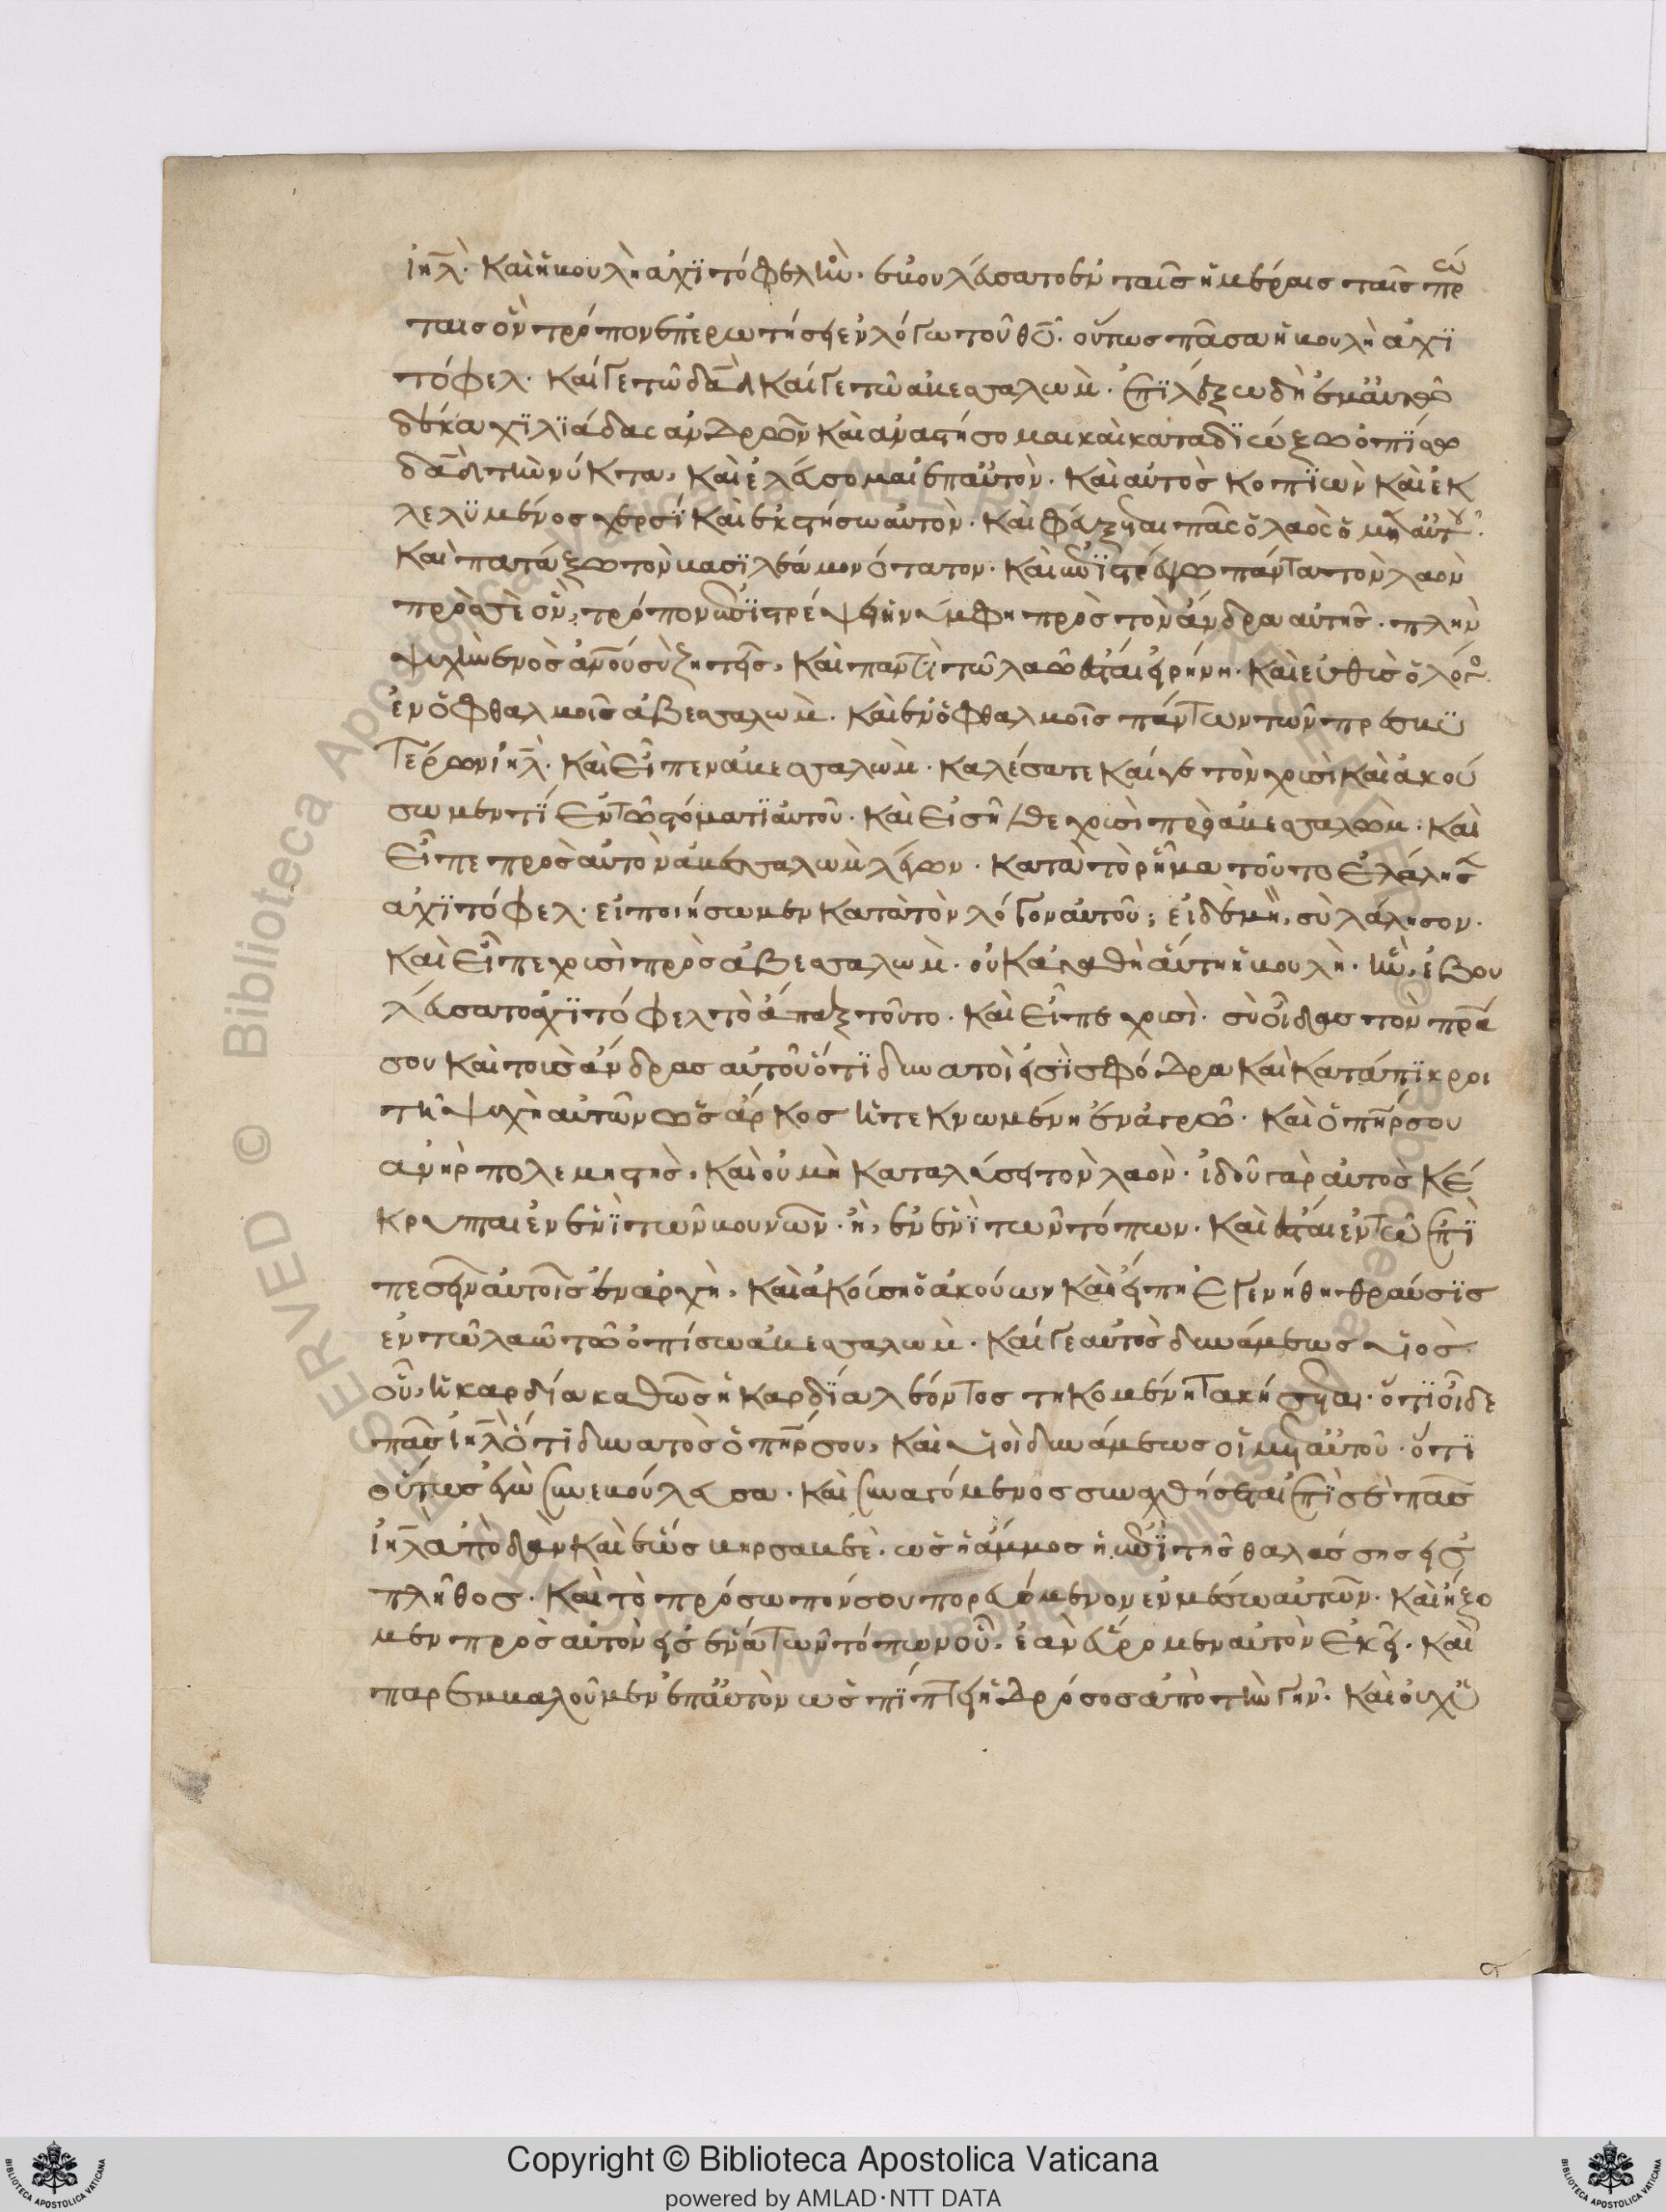 ιηλ̅. Καὶ ἡ βουλὴ αχϊτόφελ ἣν ἐβουλεύσατο ἐν ταῖς ἡμέραις ταῖς πρώ
ταις ὃν τρόπον ἐπερωτήσῃ ἐν λόγω τοῦ θυ̅. οὕτως πᾶσα ἡ βουλὴ αχϊ
τόφελ. Καί γε τῶ δαδ̅ καί γε τῶ αβεσσαλώμ. ἐπϊλέξω δὴ ἐμαυτῶ
δέκα χϊλϊάδας ανδρῶν καὶ αναστήσομαι καὶ καταδϊώξω ὀπίσω
δαδ̅ τὴν νύκτα, καὶ ἐλεύσομαι ἐπ αὐτὸν. Καὶ αὐτὸς κοπϊῶν καὶ ἐκ
λελϋμένος χερσὶ καὶ ἐκστήσω αυτὸν. καὶ φεύξεται πᾶς ὁ λαὸς ὁ μετ αὐτοῦ.
Καὶ πατάξω τὸν βασϊλέα μονότατον. Καὶ ἐπϊστρέψω πάντα τὸν λαὸν
πρὸς σὲ ὃν τρόπον ἐπϊστρέψει ἡ νύμφη πρὸς τὸν άνδρα αυτῆς. πλὴν
ψυχὴν ἑνὸς ἀνου̅ σὺ ζητεῖς, Καὶ παντὶ τῶ λαῶ ἔσται εἰρήνη. Καὶ εὐθὺς ὁ λόγος
ἐν ὀφθαλμοῖς αβεσσαλώμ. Καὶ ἐν ὀφθαλμοῖς πάντων τῶν πρεσβϋ
τέρων ιηλ̅. Καὶ εἶπεν αβεσσαλώμ. καλέσατε καί γε τὸν χουσὶ καὶ ἀκού
σωμεν τί ἐν τῶ στόματϊ αυτοῦ. Καὶ εἰσῆλθε χουσὶ πρὸς αβεσσαλώμ. Καὶ
εἶπε πρὸς αὐτὸν αβεσσαλὼμ λέγων. Κατὰ τὸ ρῆμα τοῦτο ἐλάλησεν
αχϊτόφελ. εἰ ποιήσωμεν κατὰ τὸν λόγον αυτοῦ; εἰ δὲ μὴ, σὺ λάλησον.
Καὶ εἶπε χουσὶ πρὸς αβεσσαλώμ. οὐκ ἀγαθὴ αὕτη ἡ βουλὴ. ἣν ἐβου
λεύσατο αχϊτόφελ τὸ ἅπαξ τοῦτο. Καὶ εἶπε χουσὶ. σὺ οἶδας τὸν πρα̅
σου καὶ τοὺς άνδρας αυτοῦ ὅτϊ δυνατοὶ εἰσὶ σφόδρα καὶ κατάπϊκροι
τῆ ψυχῆ αυτῶν ὡς άρκος ἠτεκνωμένη ἐν ἀγρῶ. Καὶ ὁ πηρ̅ σου
ανὴρ πολεμιστὴς, καὶ οὐ μὴ καταλύσει τὸν λαὸν. ἰδοὺ γὰρ αυτὸς κέ
κρυπται ἐν ἑνὶ τῶν βουνῶν. ἢ, ἐν ἑνὶ τῶν τόπων. Καὶ ἔσται ἐν τῶ ἐπϊ
πεσεῖν αυτοῖς ἐν αρχῆ, Καὶ ἀκούσει ὁ ἀκούων καὶ εἴπη ἐγενήθη θραῦσϊς
ἐν τῶ λαῶ τῶ ὀπίσω αβεσσαλώμ. Καί γε αὐτὸς δυνάμεως υἱὸς.
οὗ, ἡ καρδία καθὼς ἡ καρδία λέοντος τηκομένη τακήσεται. ὅτϊ οἶδε
πᾶς ιηλ̅ ὅτϊ δυνατὸς ὁ πηρ̅ σου, Καὶ υἱοὶ δυνάμεως οἱ μετ αὐτοῦ. ὅτϊ
οὕτως ἐγὼ συνεβούλευσα. Καὶ συναγόμενος συναχθήσεται ἐπϊ σὲ πᾶς
ιηλ̅ ἀπὸ δὰν καὶ ἕως βηρσαβεὲ. ὡς ἡ άμμος ἡ ἐπϊ τῆς θαλάσσης εἰς
πλῆθος. Καὶ τὸ πρόσωπόν σου πορευόμενον ἐν μέσω αυτῶν. Καὶ ἥξο
μεν πρὸς αυτὸν εἰς ἕνα τῶν τόπων οὗ, ἐὰν εὕρομεν αὐτὸν ἐκεῖ. Καὶ
παρεμβαλοῦμεν ἐπ αὐτὸν ὡς πίπτει ἡ δρόσος ἀπὸ τὴν γῆν. Καὶ οὐχ ὑ
Copyright © Biblioteca Apostolica Vaticana
powered by AMLAD·NTT DATA